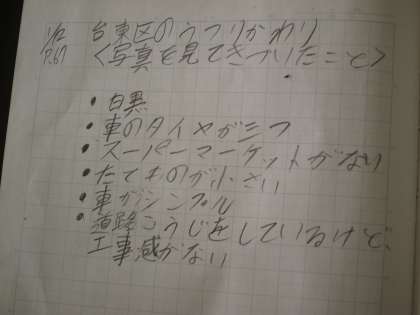 1/12 台東区のうつりかわり
P.67 <写真を見てきづいたこと>
・白黒
・車のタイヤが三つ
・スーパーマーケットがない
・たてものが小さい
・車がシンプル
・道路こうじをしているけど、
工事感がない